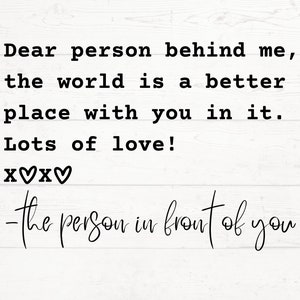 Dear person behind me,
the world is a better
place with you in it.
Lots of love!
x♡x♡
-the person in front of you